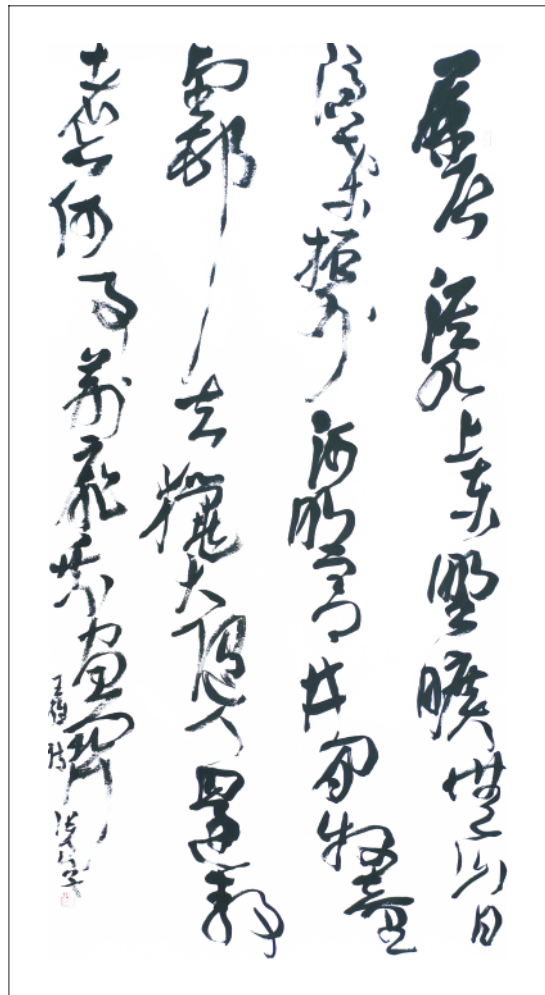 屏居淇水上東野曠無山日
隱桑柘外河明閭井間牧童
望邨去獵犬隨人還靜
者亦何事荊扉乘晝關
王維詩